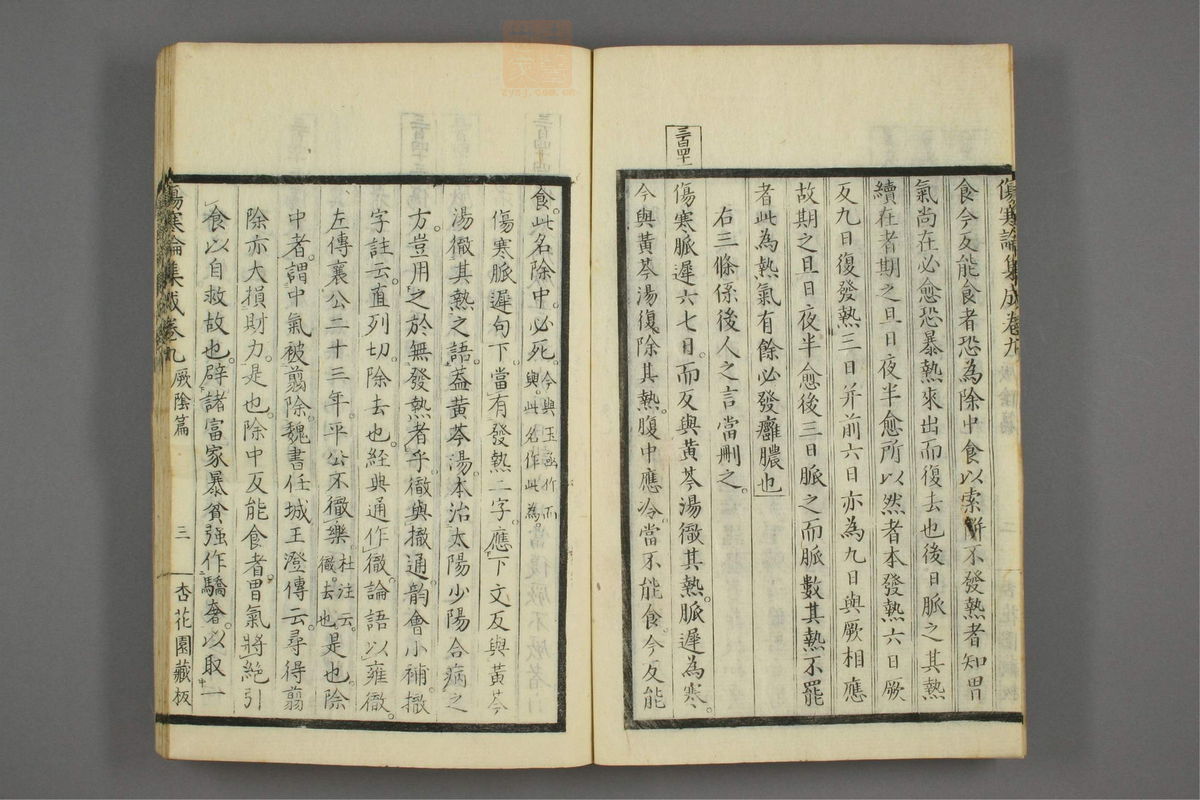 傷寒論集成卷九
食今反能食者恐為除中食以索餅不發熱者知胃
氣尚在必愈恐暴熱來出而復去也後日脈之其熱
續在者期之旦日夜半愈所以然者本發熱六日厥
反九日復發熱三日并前六日亦為九日與厥相應
故期之旦日夜半愈後三日脈之而脈數其熱不罷
者此為熱氣有餘必發癰膿也
右三條係後人之言當刪之
三百四十一
傷寒脈遲六七日而反與黃芩湯徹其熱脈遲為寒
今與黃芩湯復除其熱腹中應冷當不能食今反能
食此名除中必死
今與玉函作而
與此名作此為
傷寒脈遲句下當有發熱二字應下文反與黃芩
湯徹其熱之語蓋黃芩湯本治太陽少陽合病之
方豈用之於無發熱者乎徹與撤通韵會小補撤
字註云直列切除去也經典通作徹論語以雍徹
左傳襄公二十三年平公不徹樂杜注云徹去也是也除
中者謂中氣被翦除魏書任城王澄傳云尋得翦
除亦大損財力是也除中反能食者胃氣將絕引
食以自救故也辟諸富家暴貧強作驕奢以取一
傷寒論集成卷九 厥陰篇 三 杏花園藏板
zysj.com.cn